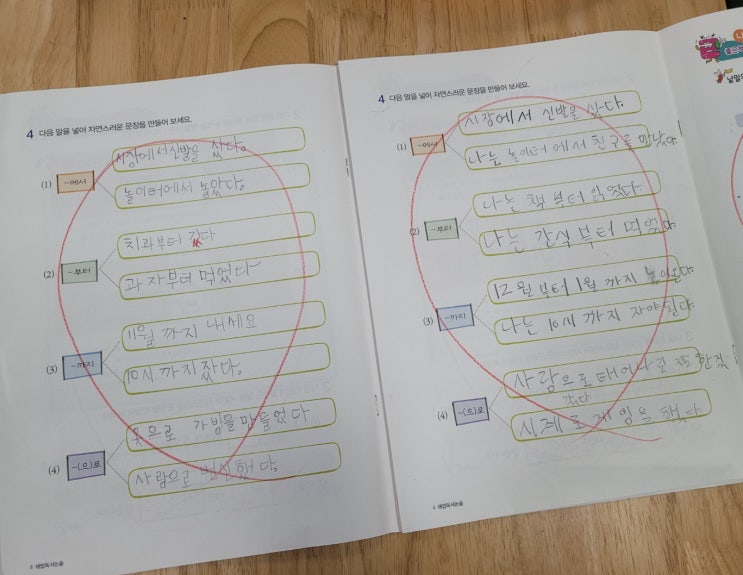 4 다음 말을 넣어 자연스러운 문장을 만들어 보세요.
(1) ~에서
시장에서 신발을 샀다.
놀이터에서 놀았다.
(2) ~부터
치과부터 갔다
과자부터 먹었다
(3) ~까지
11월 까지 내세요
10시 까지 잤다.
(4) ~(으)로
옷으로 가방을 만들었다
사람으로 변신했다.
4 해법독서논술
4 다음 말을 넣어 자연스러운 문장을 만들어 보세요.
(1) ~에서
시장에서 신발을 샀다.
나는 놀이터에서 친구를 만났다
(2) ~부터
나는 책부터 읽었다
나는 간식부터 먹었다
(3) ~까지
12월부터 1월까지
나는 10시까지 자야된다.
(4) ~(으)로
사람으로 태어나길
갔다
4 해법독서논술